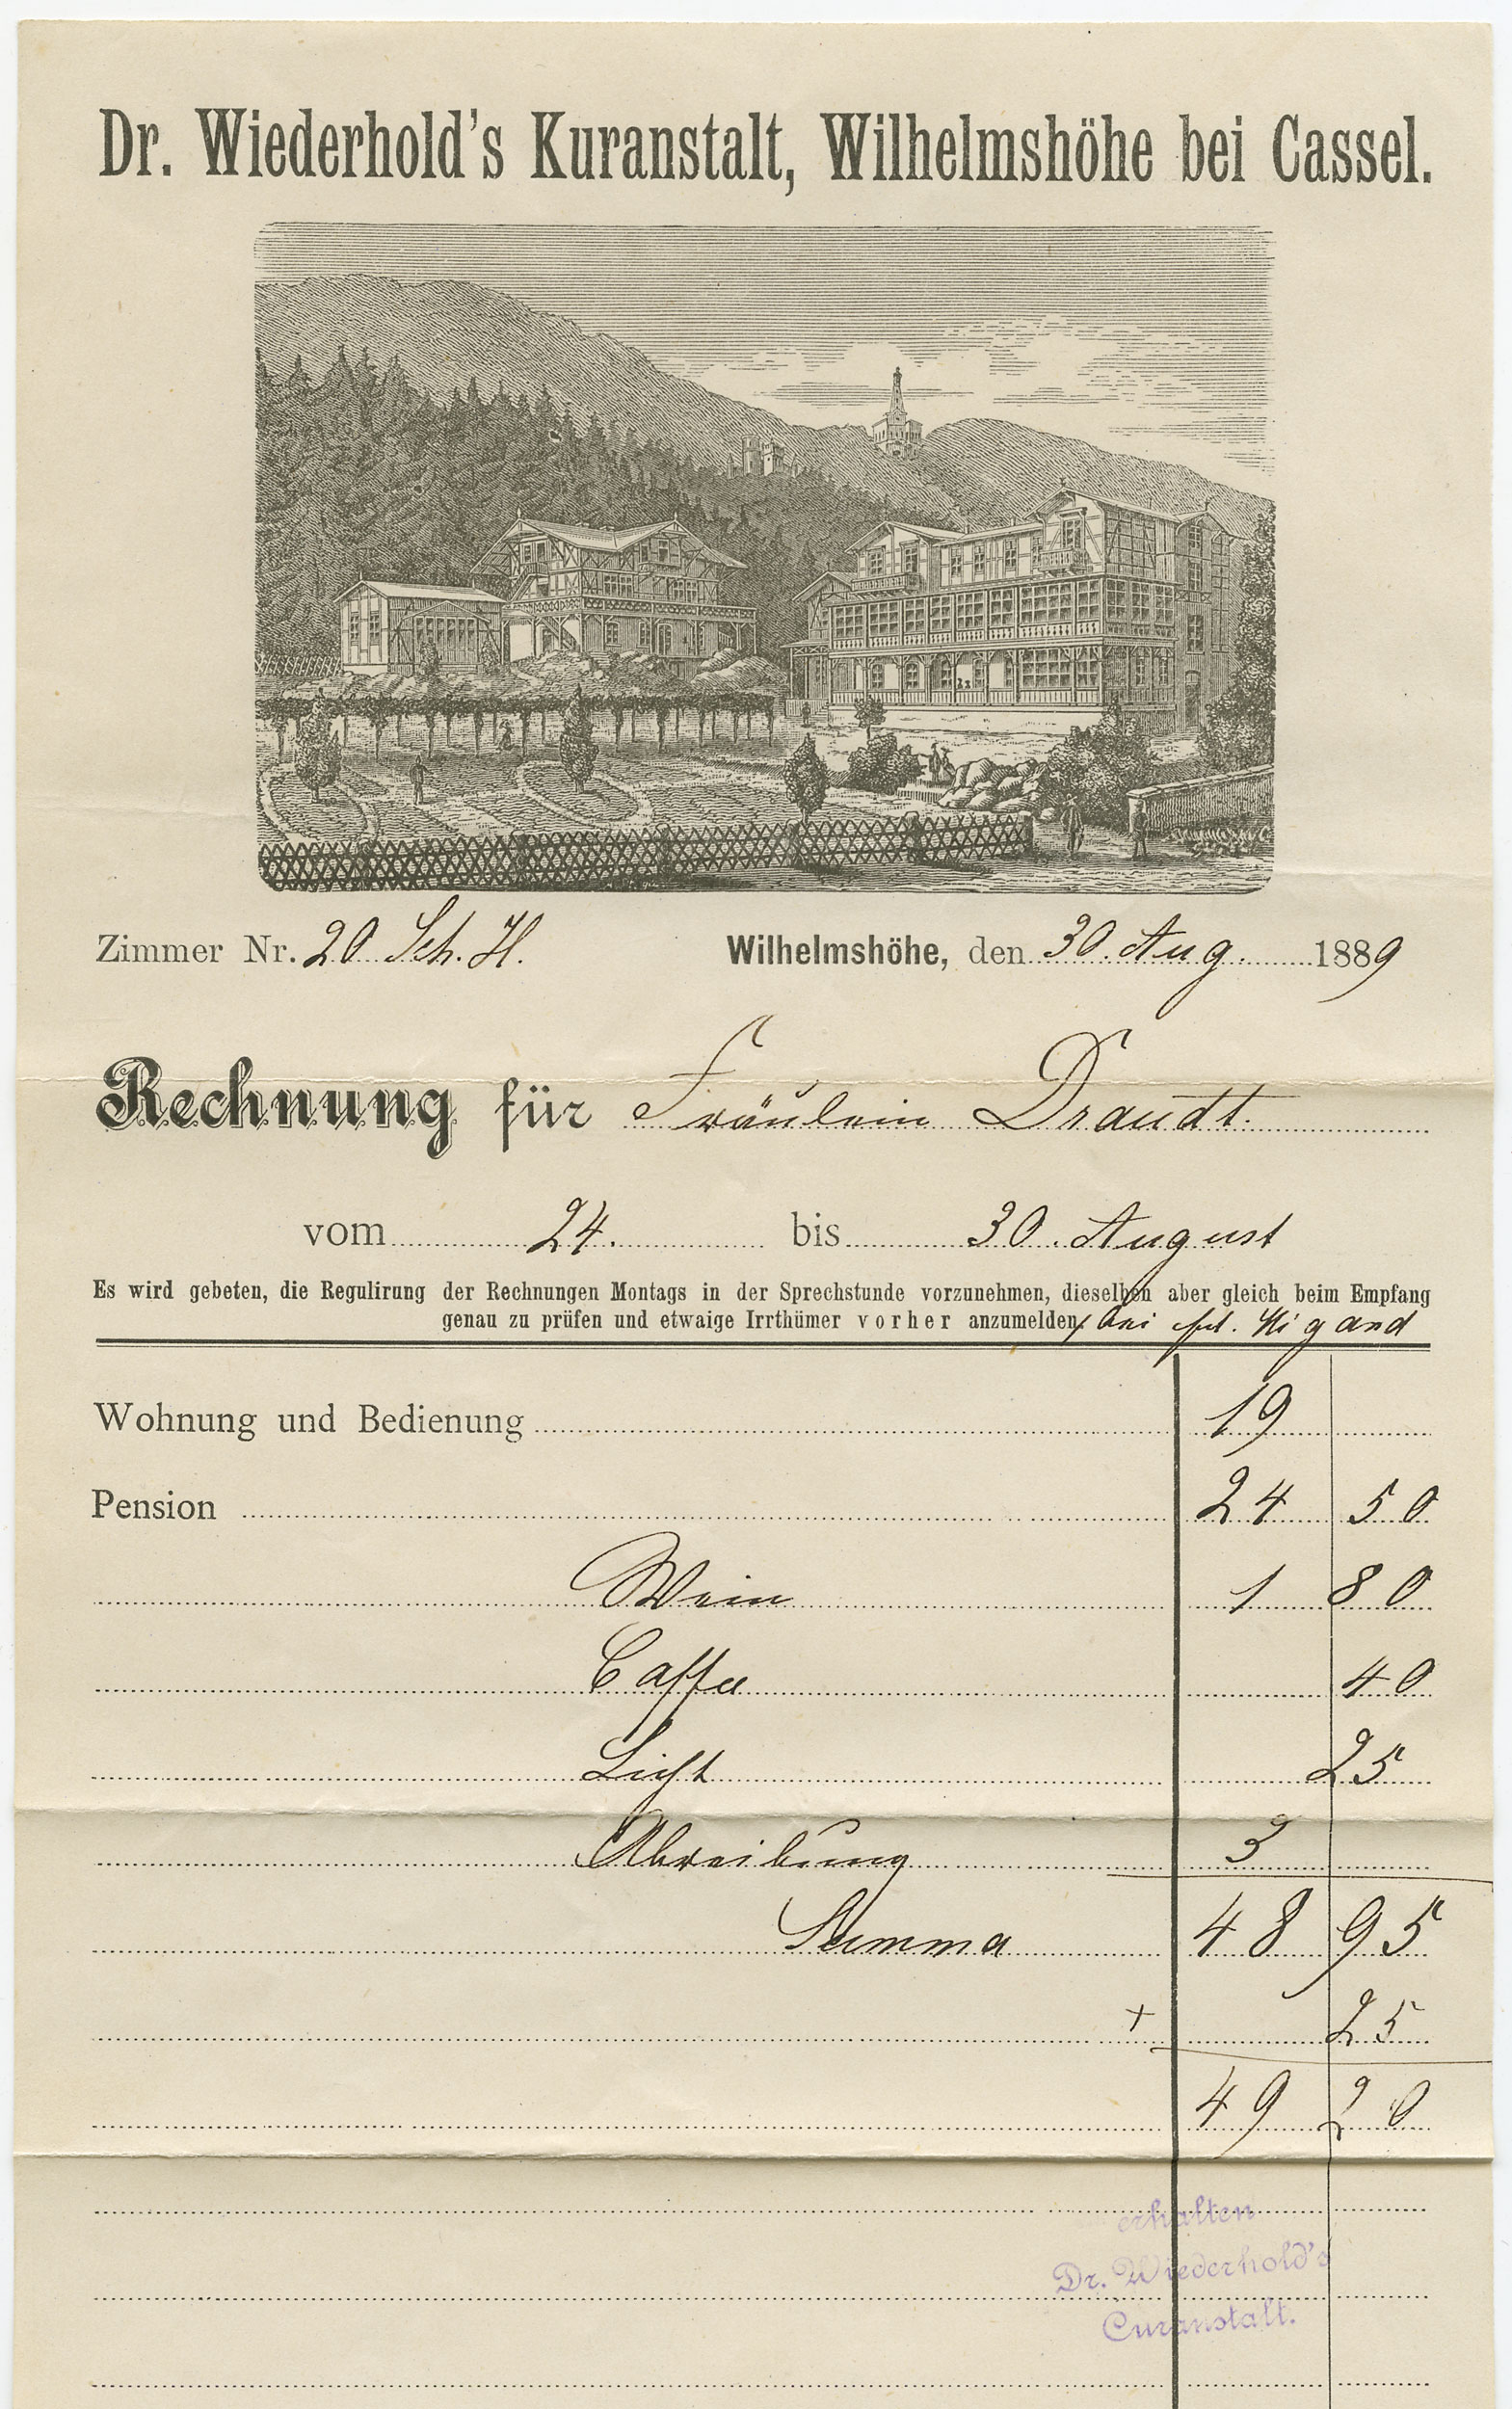 Dr. Wiederhold's Kuranstalt, Wilhelmshöhe bei Cassel.
Zimmer Nr. 20 Sch. H. Wilhelmshöhe, den 30. Aug. 1889
Rechnung für Fräulein Draudt.
vom 24. bis 30. August
Es wird gebeten, die Regulirung der Rechnungen Montags in der Sprechstunde vorzunehmen, dieselben aber gleich beim Empfang
genau zu prüfen und etwaige Irrthümer vorher anzumelden bei Frl. Wigand
Wohnung und Bedienung 19
Pension 24 50
Wein 1 80
Caffee 40
Licht 25
Abreibung 3
Summa 48 95
+ 25
49 20
erhalten
Dr. Wiederhold's
Curanstalt.